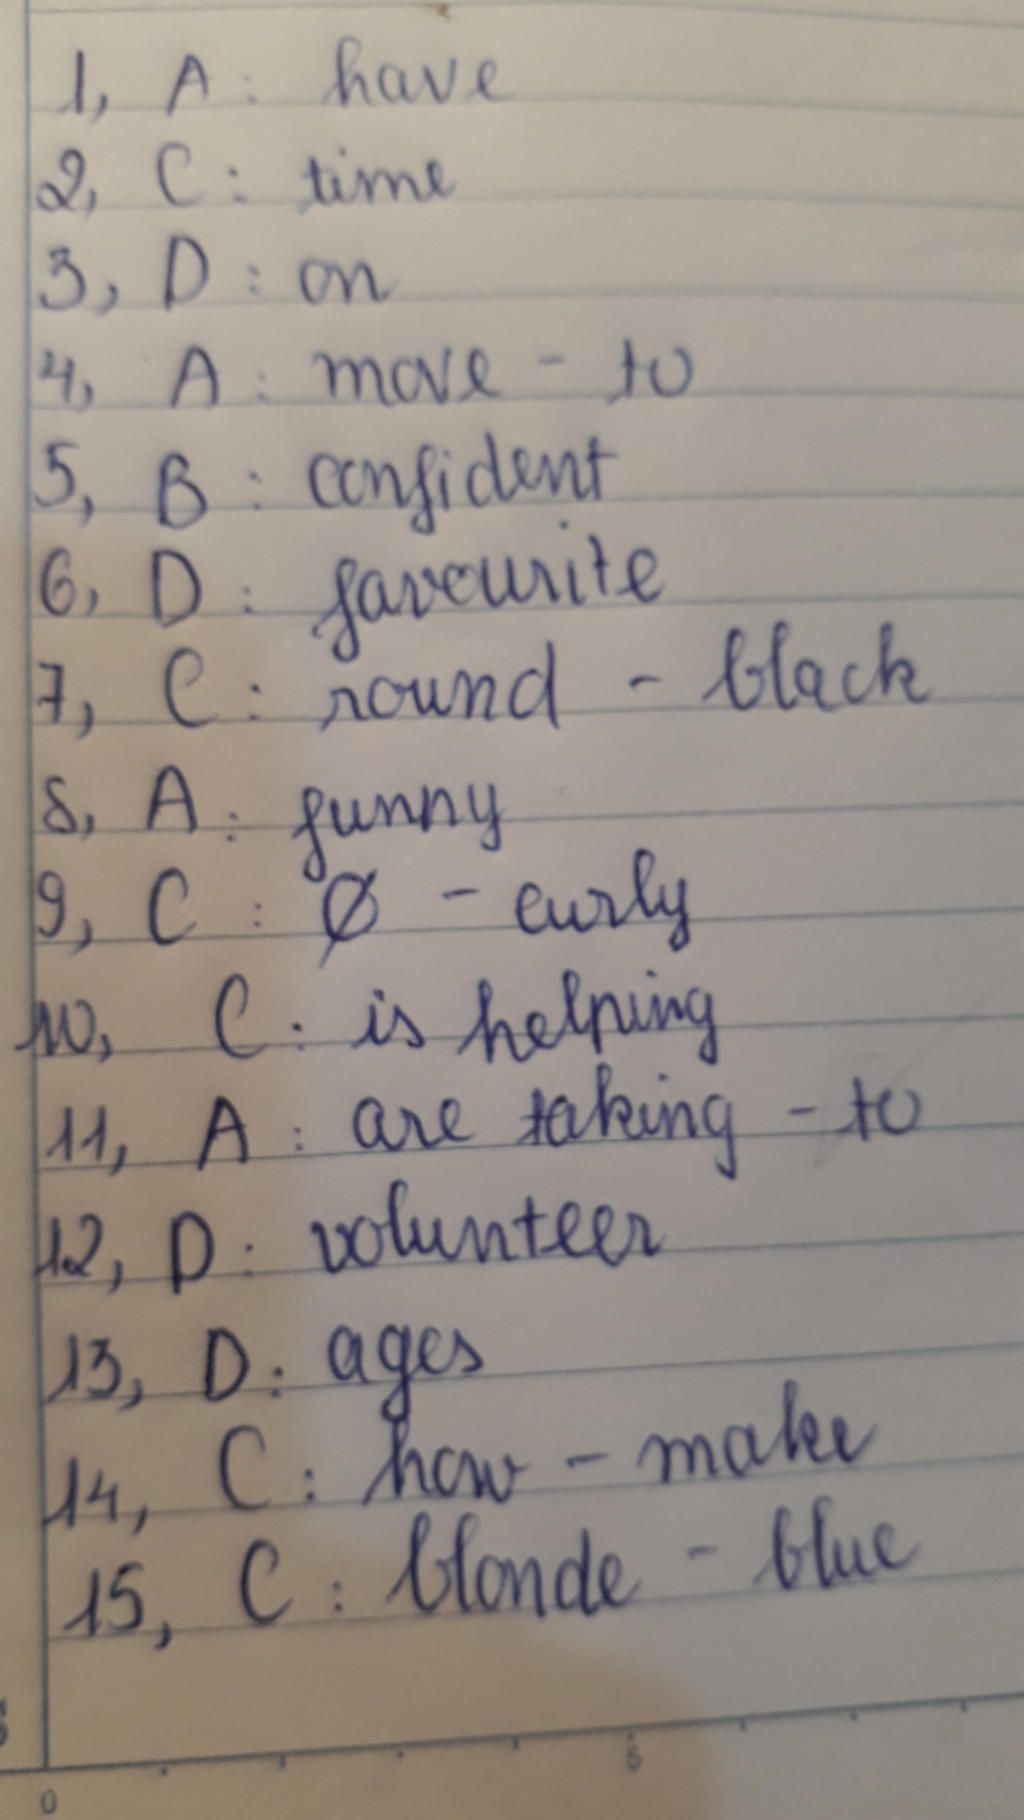 1, A: have
2, C: time
3, D: on
4, A: move - to
5, B: confident
6, D: favourite
7, C: round - black
8, A: funny
9, C: Ø - curly
10, C: is helping
11, A: are taking - to
12, D: volunteer
13, D: ages
14, C: how - make
15, C: blonde - blue
0 5